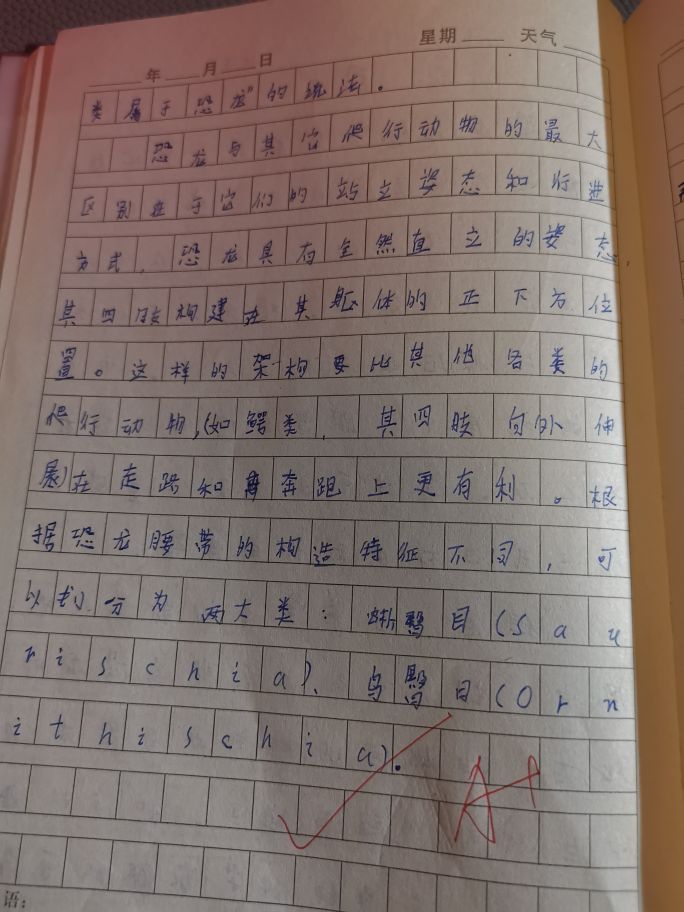 星期 天气
年 月 日
类属于恐龙”的统法。
恐龙与其它爬行动物的最大
区别在于它们的站立姿态和行进
方式，恐龙具有全然直立的姿态，
其四肢构建在其躯体的正下方位
置。这样的架构要比其他各类的
爬行动物，(如鳄类，其四肢向外伸
展)在走路和奔跑上更有利。根
据恐龙腰带的构造特征不同，可
以划分为两大类：蜥臀目(Sau
rischia)、鸟臀目(Orn
ithischia)。
A+
语：